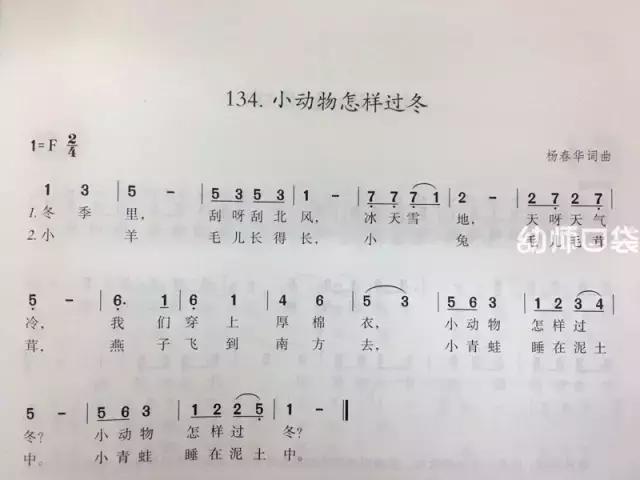 134. 小动物怎样过冬
1=F 2/4
杨春华 词曲
1 3 | 5 - | 5 3 5 3 | 1 - | 7 7 7 1 | 2 - | 2 7 2 7 |
1. 冬 季 里, 刮 呀 刮 北 风, 冰 天 雪 地, 天 呀 天 气
2. 小 羊 毛 儿 长 得 长, 小 兔 毛 儿 毛 茸
幼师口袋
5 - | 6. 1 | 7 6 7 5 | 6 6 7 6 | 5 3 | 5 6 3 | 1 2 3 4 |
冷, 我 们 穿 上 厚 棉 衣, 小 动 物 怎 样 过
茸, 燕 子 飞 到 南 方 去, 小 青 蛙 睡 在 泥 土
5 - | 5 6 3 | 1 2 2 5 | 1 - ‖
冬? 小 动 物 怎 样 过 冬?
中。 小 青 蛙 睡 在 泥 土 中。